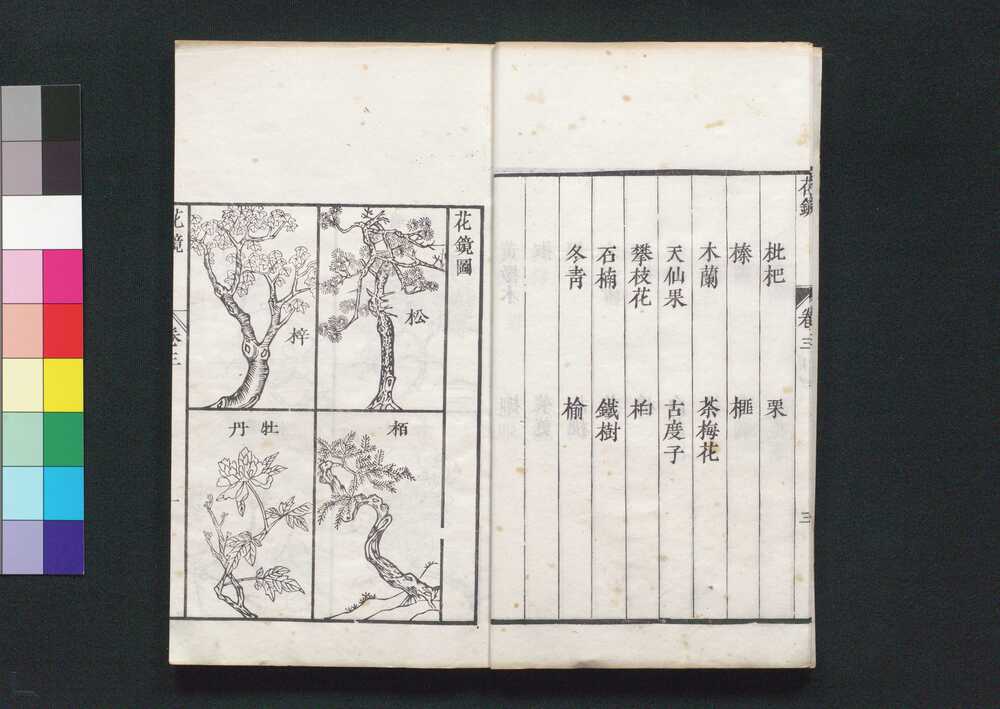 花鏡
卷三
三
枇杷 栗
榛 榧
木蘭 茶梅花
天仙果 古度子
攀枝花 桕
石楠 鐵樹
冬靑 榆
花鏡圖
松
梓
栢
牡丹
花鏡
卷三
一